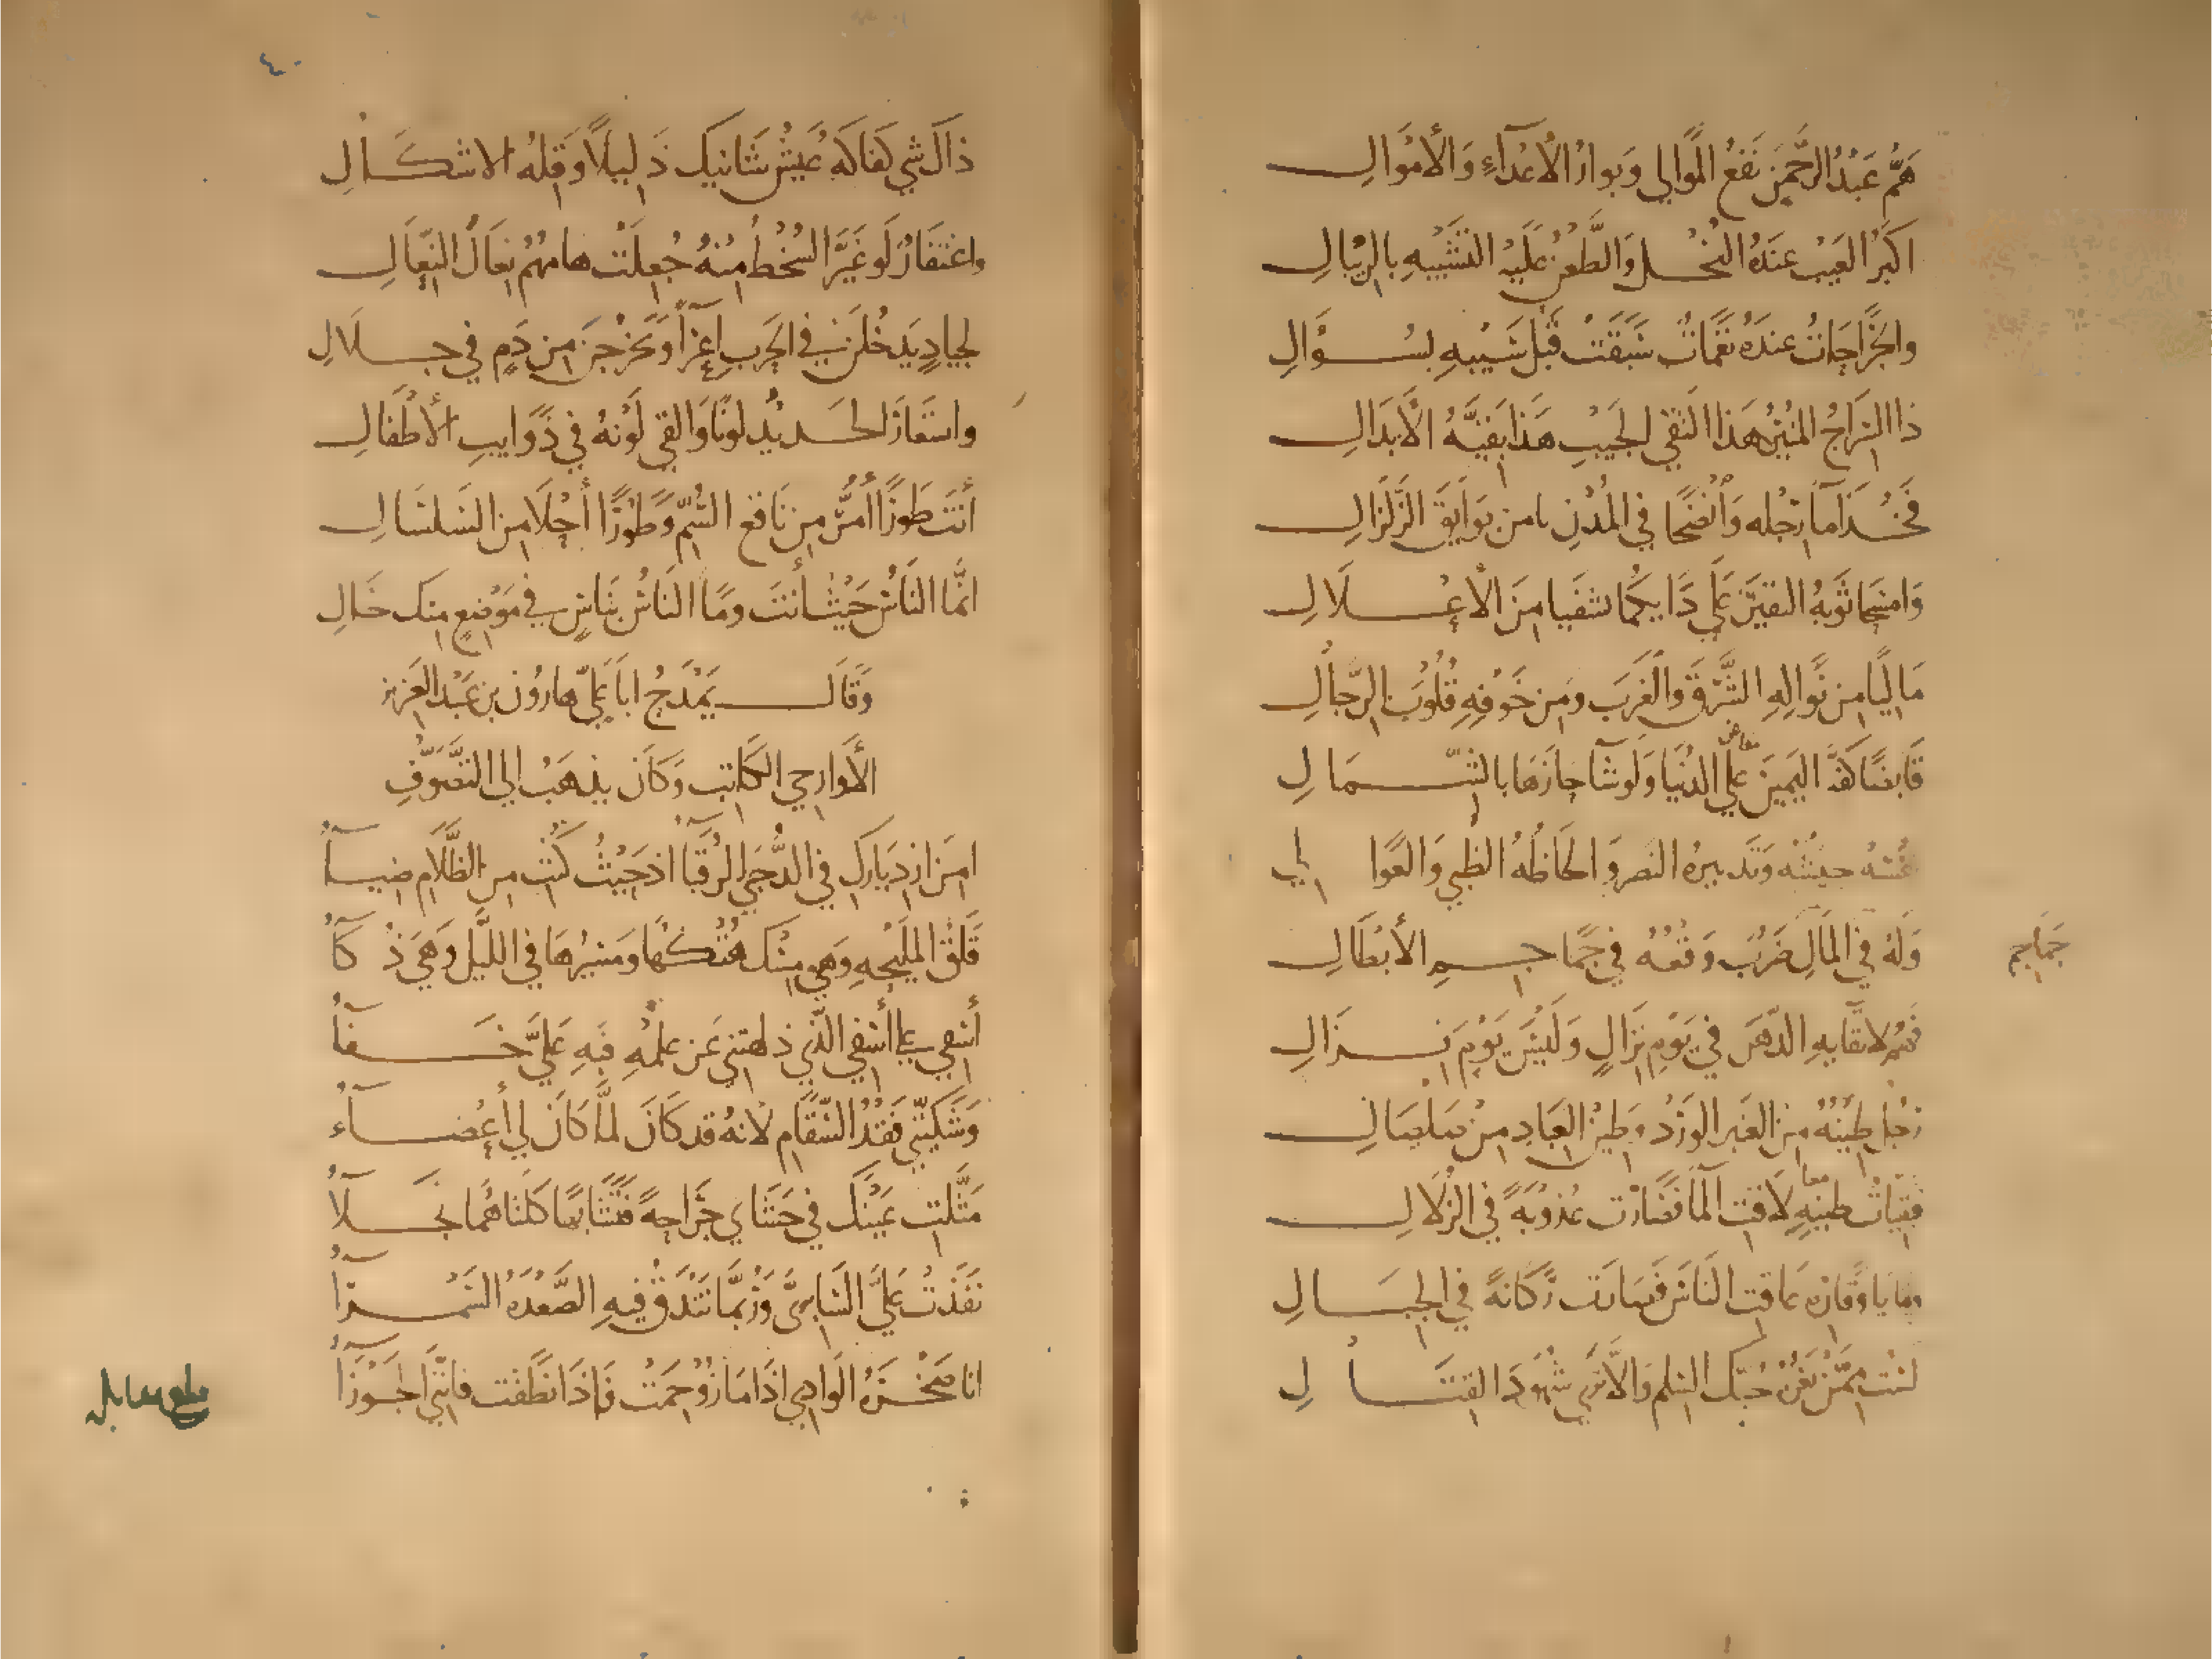 هَمُّ عَبْدِ الرَّحْمٰنِ نَفعُ الْمَوَالِي وَبَوارُ الْأَعْدَآءِ وَالأَمْوَالِ
اكبَرُ العَيْبِ عِندَهُ البُخْلُ وَالطَّعنُ عَلَيْهِ التَشبِيْهِ بالرِيْبالِ
والجِرَاحَاتُ عندَهُ نَغَمَاتٌ سَبَقَتْ قَبْلَ سَيْبِهِ بسُؤَالِ
ذا السِّرَاجُ المُنِيْرُ هٰذا النَّقِي الجَيْبِ هَذَا بَقيَّةُ الأَبْدَالِ
فَخُذَا مآ رجْلِه وَانْضَحَا في المُدْنِ تامن بَوَايقَ الزَّلزَالِ
وَامْسَحا ثَوبَهُ البقيرَ عَلَي دَايكُمَا تشفيا مِنَ الاعْلَالِ
مَالِيًا مِن نَوالِهِ الشَّرْقَ والغَربَ ومِن خَوْفِهِ قُلُوبَ الرِّجَالِ
قَابضًا كَفَّهُ اليَمِيْنَ علي الدُنيَا وَلَو شَآ حازَهَا بالشِّمَالِ
نَفْسُهُ جيشُهُ وَتَدبيرُهُ النَصرُ وَالحَاظُهُ الظبي وَالعَوالي
وَلَهُ في المَالِ ضَرْبٌ وَقْعُهُ في جَمَاجِمِ الأَبْطَالِ
جَمَاجِمِ
فهُم لاتقَايهِ الدَّهرَ في يَوْمِ نِزَالٍ وَلَيْسَ يَوْمَ نِزَالِ
رَجُلٌ طِينُهُ مِنَ العَنبر الوَرْدِ وَطِينُ العِبَادِ مِنْ صَلصَالِ
فبَقِيَّاتُ طينِهِ لَاقَتِ المَآ فَصَارَت عُذُوبَةً في الزُلَالِ
وبقايا وَقَارِهِ عَافَتِ النَاسَ فصَارَت رَكَانَةً في الجِبَالِ
لَسْتُ مِمَّنْ يَغُرُّهُ حُبُّكَ السِلمَ وَالَّا تَرَي شُهُودَ القِتَالِ
٤٠
ذَاكَ شي كفَاكَهُ عَيْشُ شَانِيْكَ ذَلِيلًا وَقِلةُ الاشكَالِ
واغتفَارٌ لَو غَيَّرَ السُخْطُ مِنهُ جُعِلَتْ هامُهُم نِعَالَ النِّعَالِ
لِجيادٍ يَدخُلنَ في الحَربِ اعْرَآ وَيَخرُجْنَ مِن دَمٍ في جِلَالِ
واستعَارَ الحَديْدُ لونًا وَالقي لَوْنَهُ في ذَوَايبِ الأَطْفَالِ
أَنتَ طَوْرًا أَمَرُّ مِن نَاقعِ السُّمِّ وَطَوْرًا أَحْلَا مِنَ السَلسَالِ
انَّمَا النَاسُ حَيْثُ أَنتَ ومَا النَاسُ بنَاسٍ في مَوْضِعٍ مِنكَ خَالِ
وَقَالَ يَمْدَحُ ابَا عَليّ هارُون بن عَبْد العَزيز
الأَوارجي الكَاتِب وَكَانَ يذهَبُ الي التَصَوُّفِ
امِنَ ازدِيَارَكِ في الدُّجَي الرُقَبَآءُ اذ حَيْثُ كُنتِ مِنَ الظَّلَامِ ضِيَآءُ
قَلَقُ المَلِيْحَةِ وَهي مِسْك هَتْكُهَا وَمَسيرُهَا في الليْلِ وَهَيَ ذُكَآءُ
أَسَفي علي أَسَفي الَّذي دلهتِني عَن عِلْمِهِ فَبِهِ عَلَيَّ خَفَآءُ
وَشَكِيَّتي فَقْدُ السَّقَامِ لأنهُ قَد كَانَ لمَّا كَانَ لي أَعْضَآءُ
مَثَّلتِ عَيْنَكَ في حَشَايَ جِرَاحةً فَتَشَابَها كلتَاهُمَا نَجْلَآءُ
نَفَذتْ عَلَيَّ السَابِريَّ وَرُبَّمَا تَنْدَقُّ فِيهِ الصَّعْدَةُ السَمْرَآءُ
انا صَخْرَةُ الوَادِي اذَا مَا زُوحِمَتْ فَاذَا نطَقْت فانَّني الجَوْزَآءُ